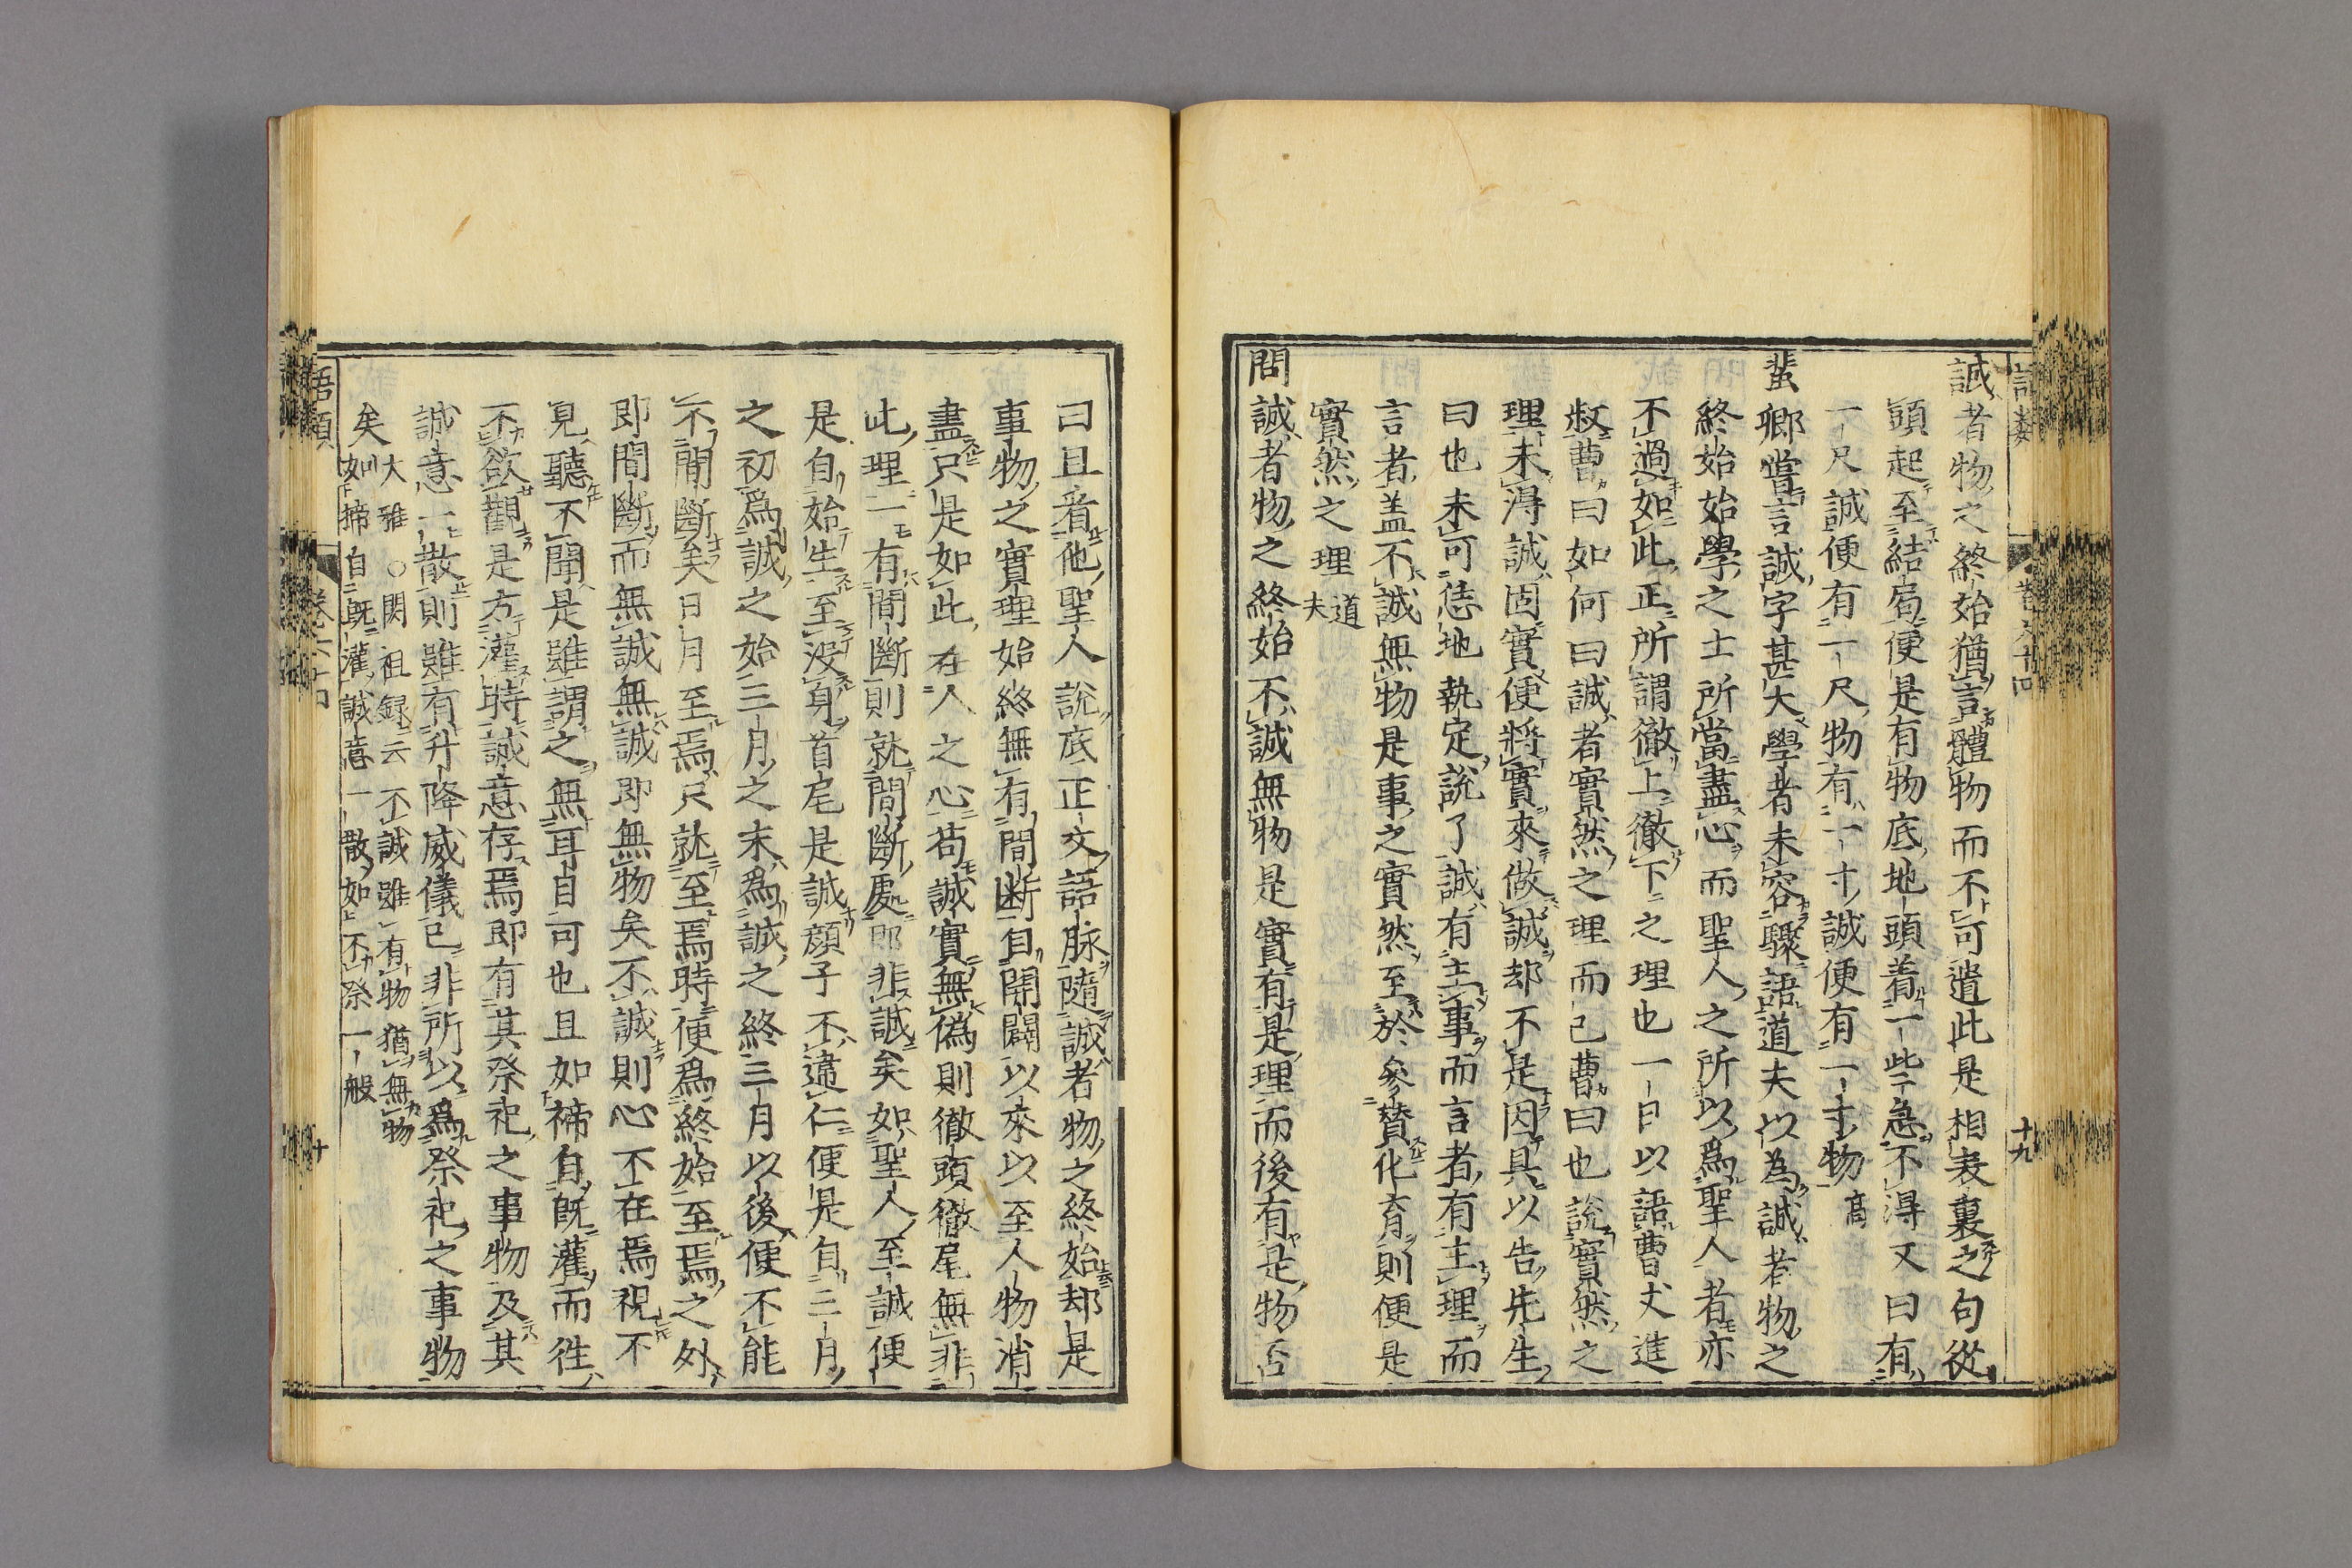 誠者物之終始猶言體物而不可遺此是相表裏之句從
頭起至結局便是有物底地頭着一些急不得又曰有
一尺誠便有一尺物有一寸誠便有一寸物高
蜚卿嘗言誠字甚大學者未容驟語道夫以為誠者物之
終始始學之士所當盡心而聖人之所以為聖人者亦
不過如此正所謂徹上徹下之理也一日以語曹丈進
叔曹曰如何曰誠者實然之理而已曹曰也說實然之
理未得誠固實便將實來做誠却不是因具以告先生
曰也未可恁地執定說了誠有主事而言者有主理而
言者盖不誠無物是事之實然至於參贊化育則便是
實然之理道夫
問誠者物之終始不誠無物是實有是理而後有是物否
曰且看他聖人說底正文語脉隨誠者物之終始却是
事物之實理始終無有間断自開闢以來以至人物消
盡只是如此在人之心苟誠實無偽則徹頭徹尾無非
此理一有間斷則就間斷處即非誠矣如聖人至誠便
是自始生至没身首尾是誠顏子不違仁便是自三月
之初為誠之始三月之末為誠之終三月以後便不能
不間斷矣日月至焉只就至焉時便為終始至焉之外
即間斷而無誠無誠即無物矣不誠則心不在焉視不
見聽不聞是雖謂之無耳目可也且如禘自既灌而徃
不欲觀是方灌時誠意存焉即有其祭祀之事物及其
誠意一散則雖有升降威儀已非所以為祭祀之事物
矣大雅○閎祖錄云不誠雖有物猶無物
如禘自既灌誠意一散如不祭一般
語類
卷六十四
十九